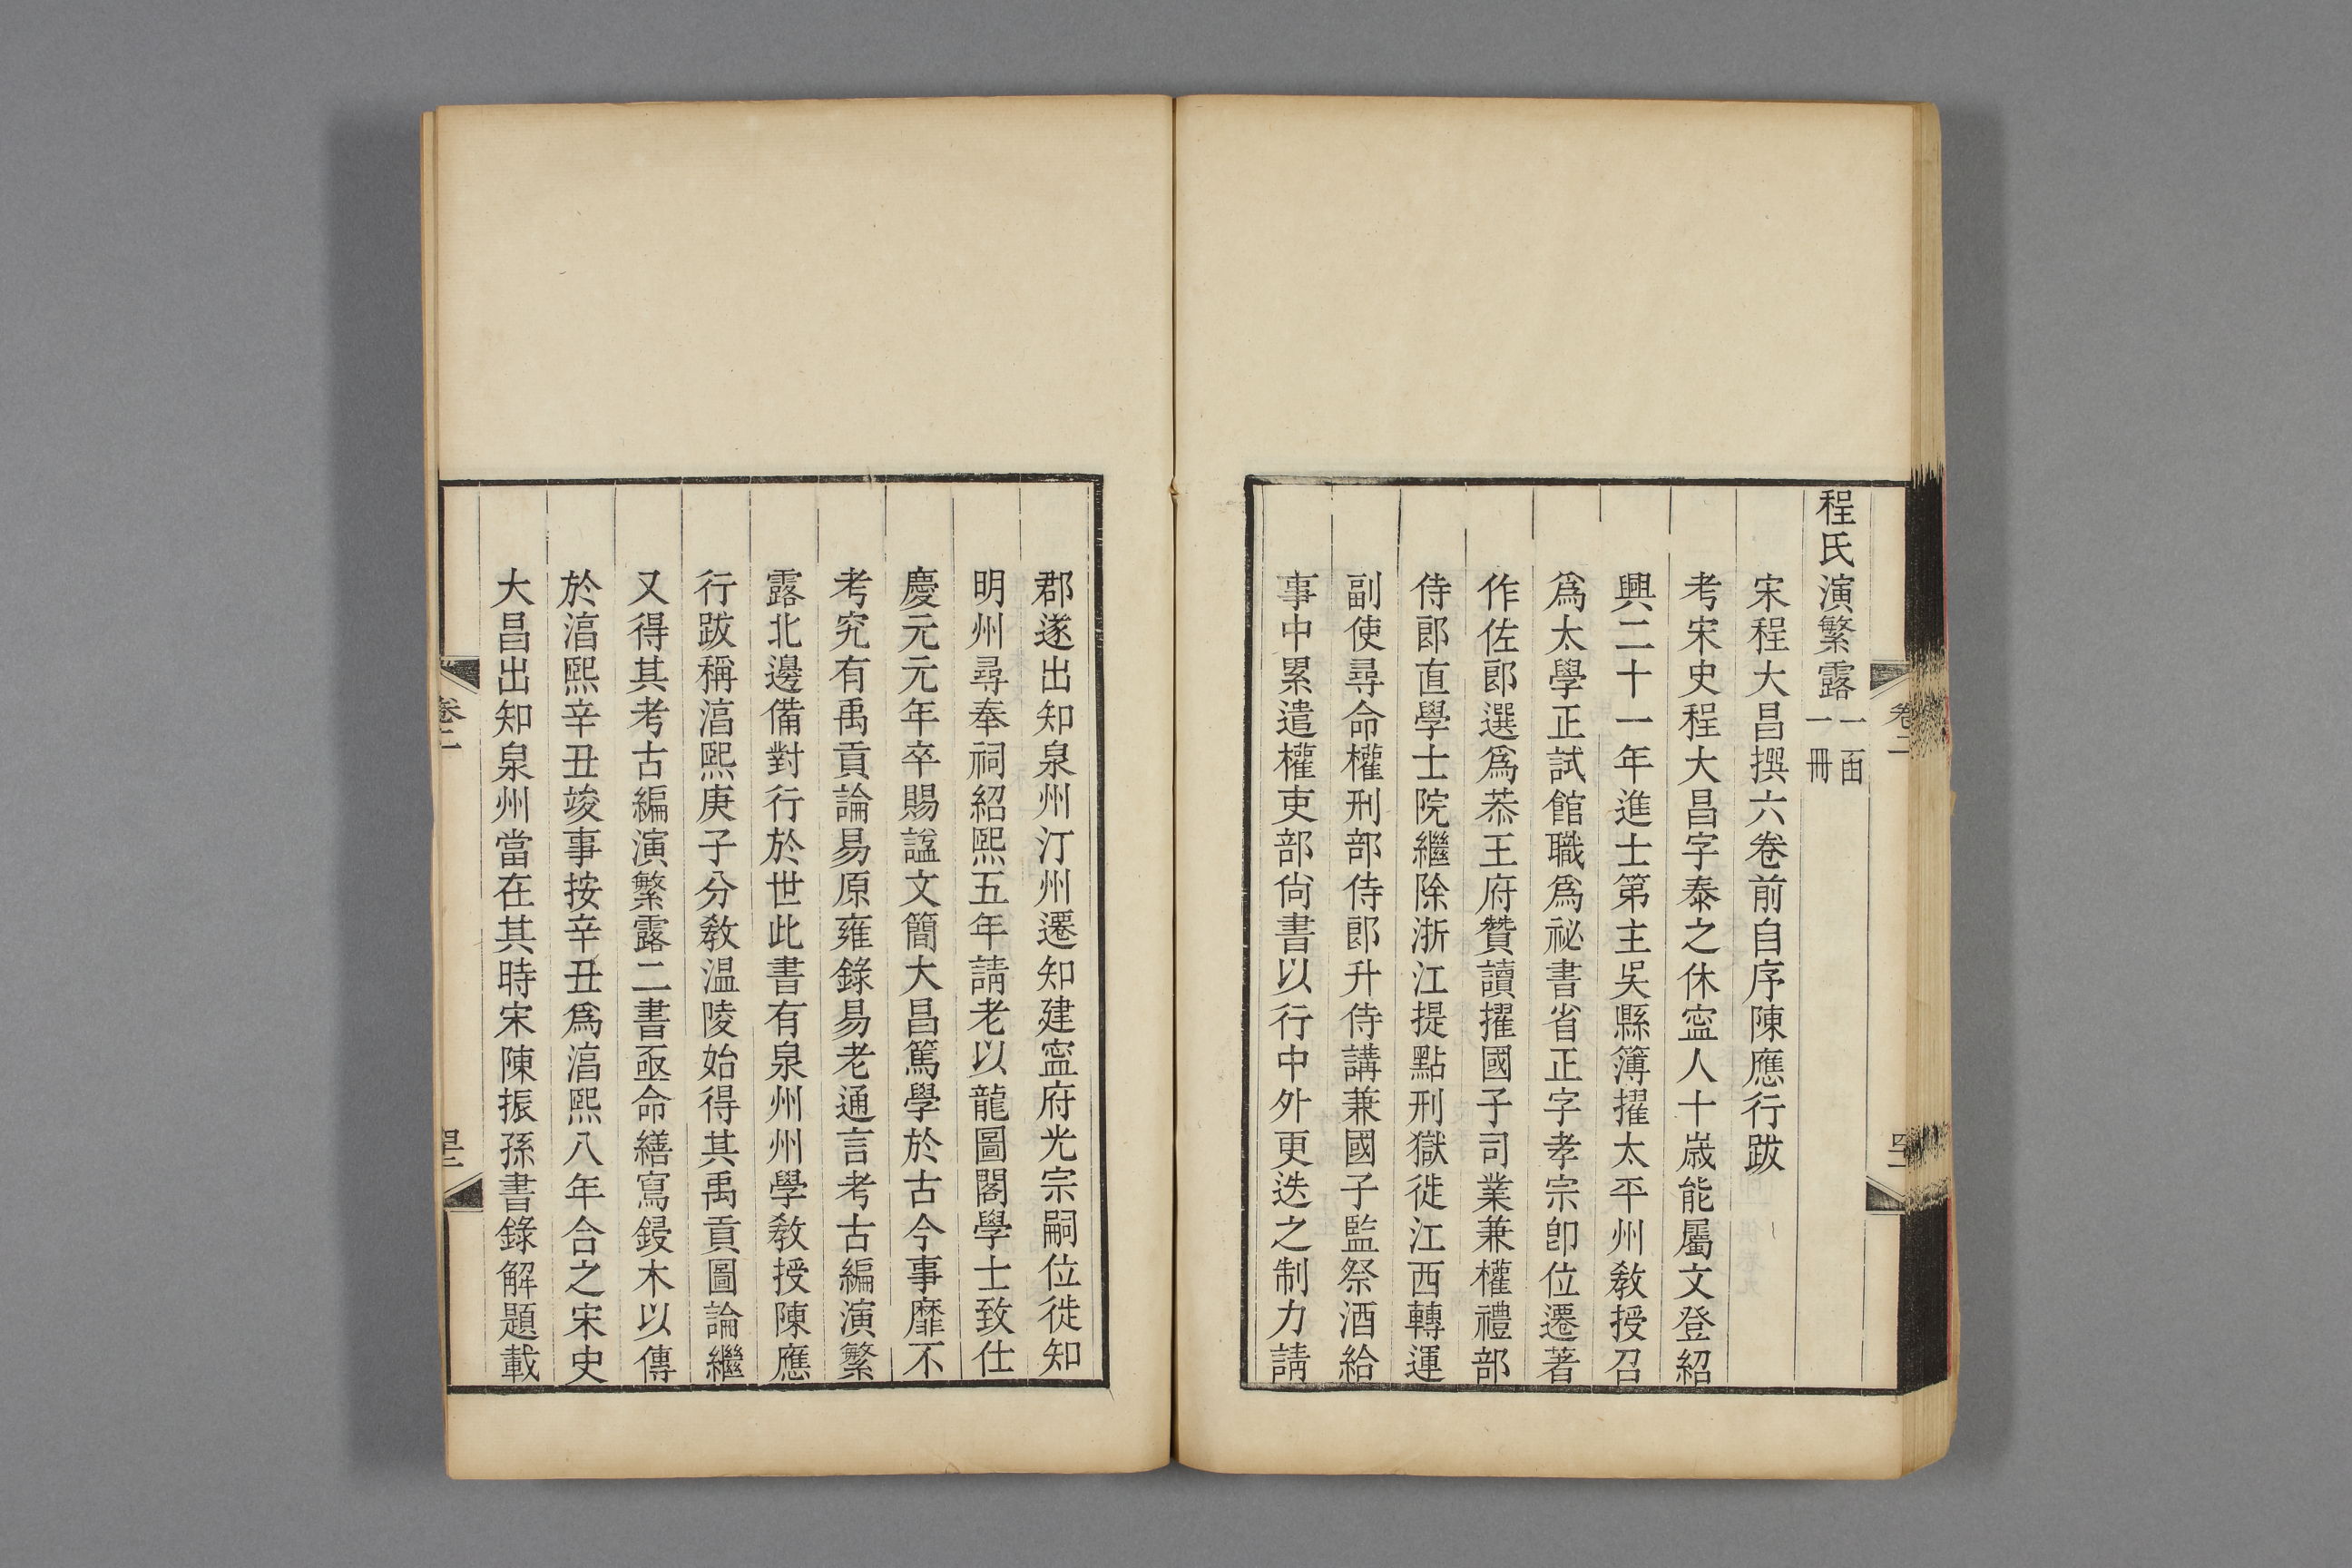 程氏演繁露一函一冊
宋程大昌撰六卷前自序陳應行跋
考宋史程大昌字泰之休寍人十歲能屬文登紹
興二十一年進士第主吳縣簿擢太平州敎授召
爲太學正試館職爲祕書省正字孝宗卽位遷著
作佐郎選爲恭王府贊讀擢國子司業兼權禮部
侍郎直學士院繼除浙江提點刑獄徙江西轉運
副使尋命權刑部侍郎升侍講兼國子監祭酒給
事中累遣權吏部尙書以行中外更迭之制力請
郡遂出知泉州汀州遷知建寍府光宗嗣位徙知
明州尋奉祠紹熙五年請老以龍圖閣學士致仕
慶元元年卒賜諡文簡大昌篤學於古今事靡不
考究有禹貢論易原雍錄易老通言考古編演繁
露北邊備對行於世此書有泉州州學敎授陳應
行跋稱湻熙庚子分敎温陵始得其禹貢圖論繼
又得其考古編演繁露二書亟命繕寫鋟木以傳
於湻熙辛丑竣事按辛丑爲湻熙八年合之宋史
大昌出知泉州當在其時宋陳振孫書錄解題載
卷二